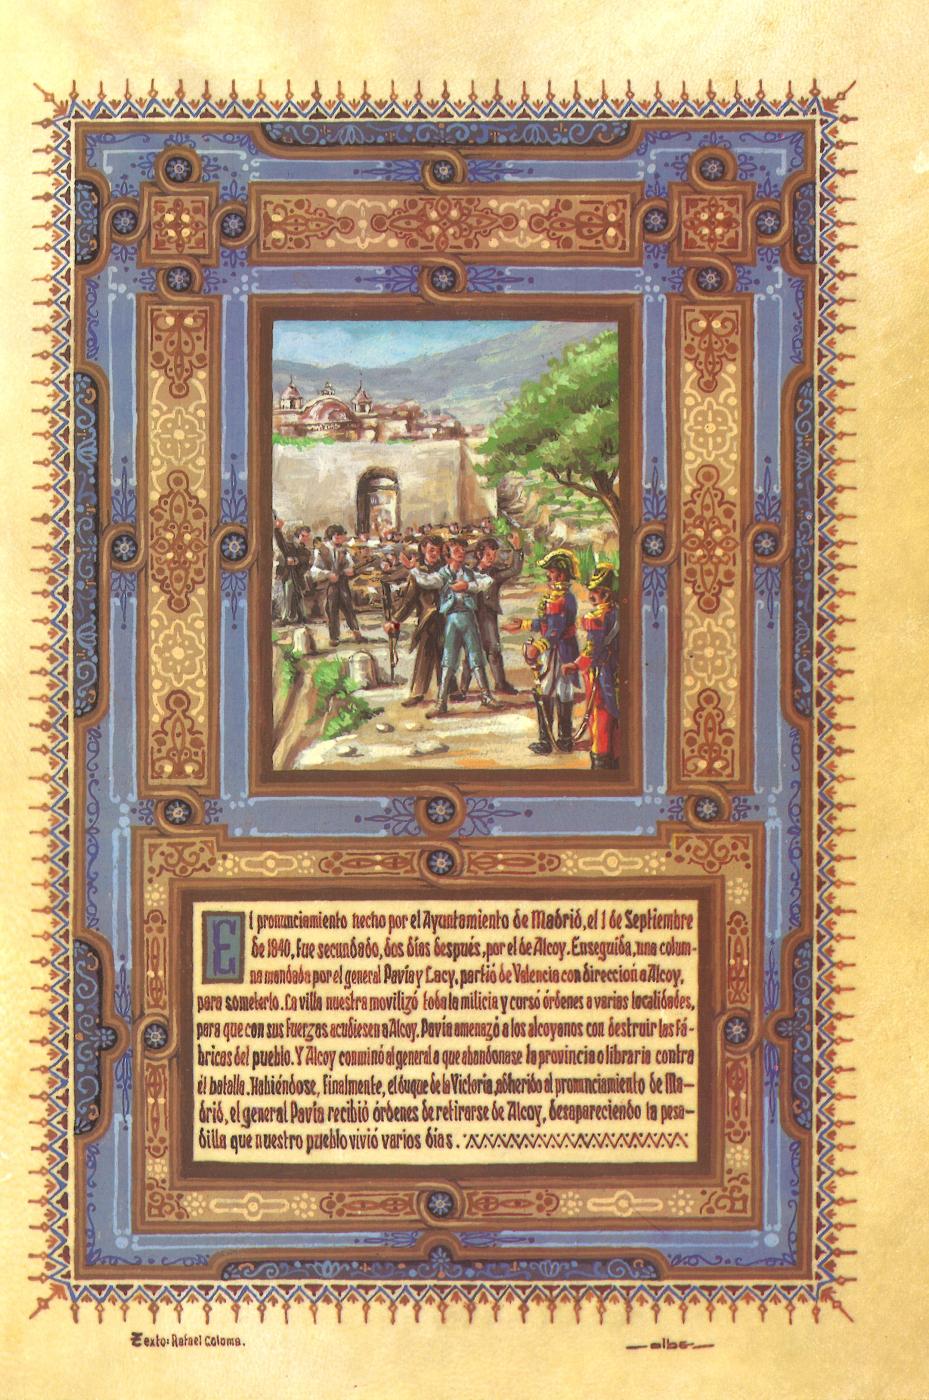 El pronunciamiento hecho por el Ayuntamiento de Madrid, el 1 de Septiembre
de 1840, fue secundado, dos días después, por el de Alcoy. Enseguida, una colum-
na mandada por el general Pavía y Lacy, partió de Valencia con dirección a Alcoy,
para someterlo. La villa nuestra movilizó toda la milicia y cursó órdenes a varias localidades,
para que con sus fuerzas acudiesen a Alcoy. Pavía amenazó a los alcoyanos con destruir las fá-
bricas del pueblo. Y Alcoy conminó al general a que abandonase la provincia o libraría contra
él batalla. Habiéndose, finalmente, el duque de la Victoria, adherido al pronunciamiento de Ma-
drid, el general Pavía recibió órdenes de retirarse de Alcoy, desapareciendo la pesa-
dilla que nuestro pueblo vivió varios días.
Texto: Rafael Coloma.